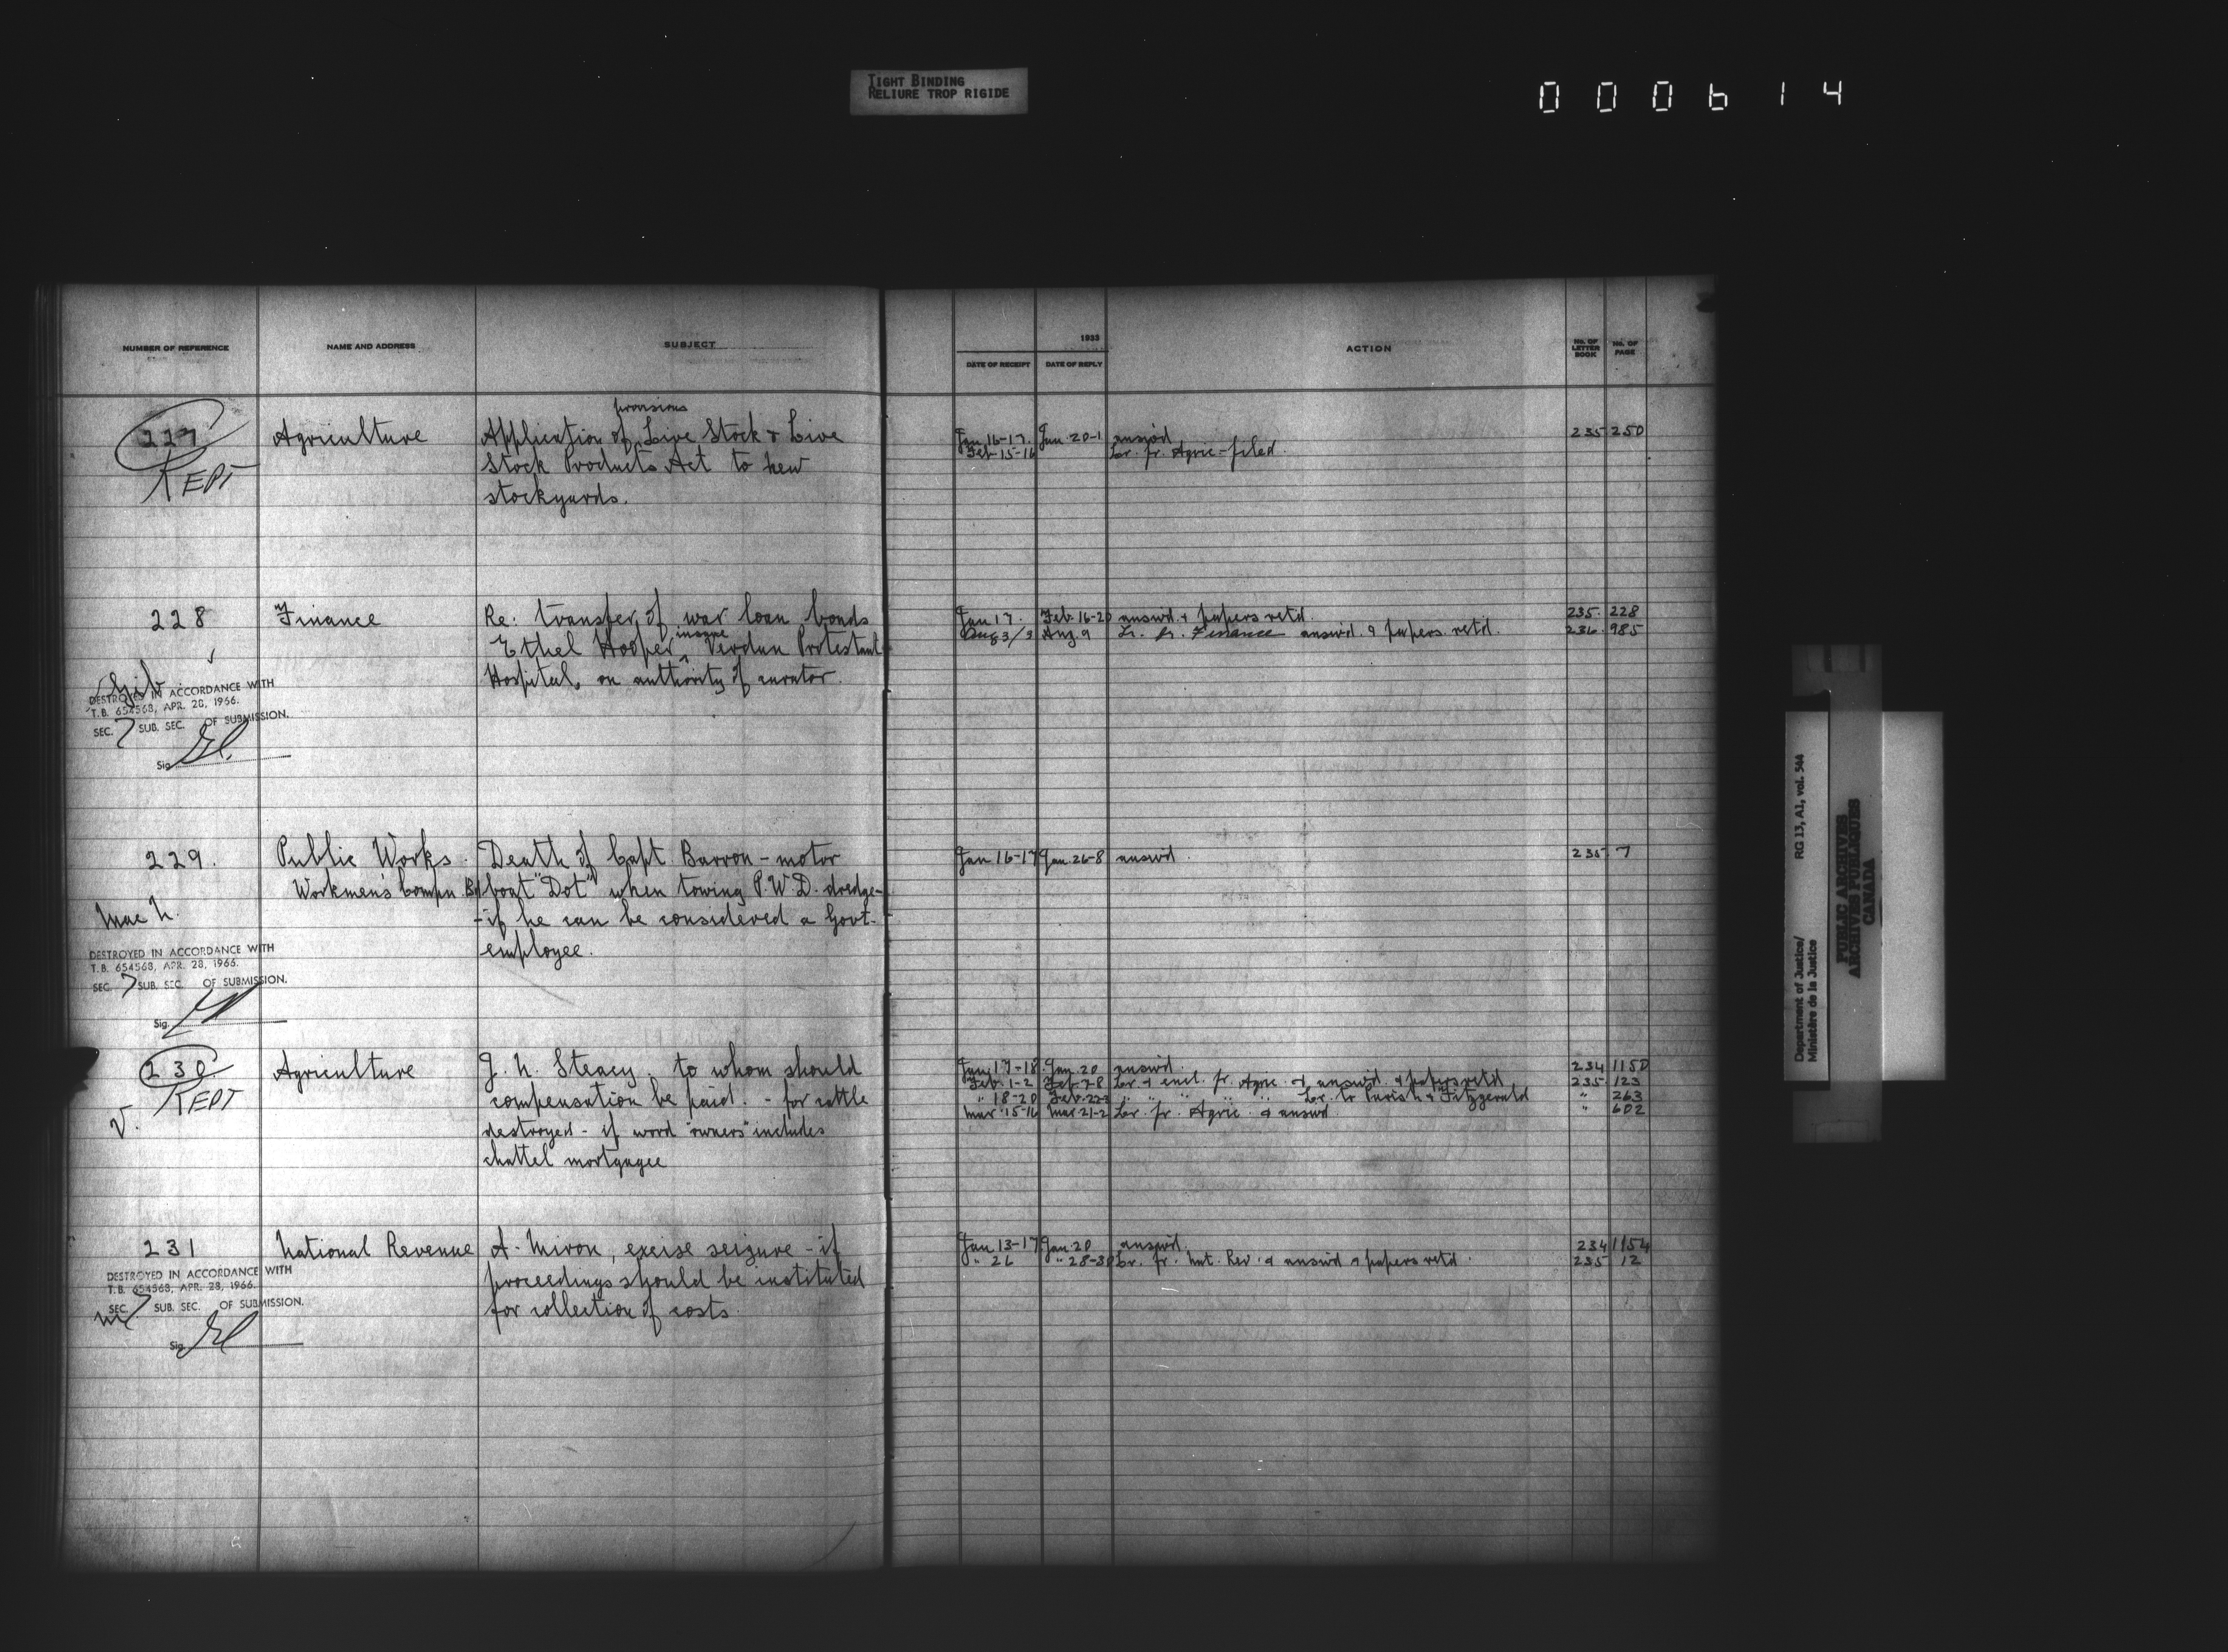 TIGHT BINDING
RELIURE TROP RIGIDE
000614
NUMBER OF REFERENCE NAME AND ADDRESS SUBJECT
1933
DATE OF RECEIPT DATE OF REPLY ACTION No. OF LETTER BOOK No. OF PAGE
provisions
227 Agriculture Application of Live Stock & Live
Stock Products Act to new
KEPT
stockyards.
Jan 16-17. Jan 20-1 answd 235 250
Feb 15-16 Lr. fr. Agric - filed.
228 Finance Re: transfer of war loan bonds
insane
Ethel Hooper, Verdun Protestant
Hospital, on authority of curator.
Jan 17. Feb. 16-20 answd & papers retd. 235. 228
Aug 3/3 Aug. 9 Lr. fr. Finance answd & papers retd. 236. 985
DESTROYED IN ACCORDANCE WITH
T.B. 654568, APR. 28, 1966.
SEC. 7 SUB. SEC. OF SUBMISSION.
Sig.
229. Public Works. Death of Capt. Barron - motor
Workmen's Compn. Bd boat "Dot" when towing P.W.D. dredge -
- if he can be considered a Govt.
employee.
Mac N.
Jan 16-17 Jan. 26-8 answd. 235 7
DESTROYED IN ACCORDANCE WITH
T.B. 654568, APR. 28, 1966.
SEC. 7 SUB. SEC. OF SUBMISSION.
Sig.
230. Agriculture J. N. Steacy. to whom should
KEPT
compensation be paid. - for cattle
V.
destroyed - if word "owners" includes
chattel mortgagee
Jan. 17-18 Jan. 20 answd. 234 1150
Feb. 1-2 Feb. 7-8 Lr. & encl. fr. Agric. & answd. & papers retd. 235. 123
" 18-20 Feb. 22-3 " " " " Lr. to Parish & Fitzgerald " 263
Mar 15-16 Mar 21-2 Lr. fr. Agric. & answd. " 602
231 National Revenue A. Miron, excise seizure - if
proceedings should be instituted
for collection of costs.
Jan 13-17 Jan. 20 answd. 234 1154
" 26 " 28-30 Lr. fr. Nat. Rev. & answd & papers retd. 235 12
DESTROYED IN ACCORDANCE WITH
T.B. 654568, APR. 28, 1966.
SEC. 7 SUB. SEC. OF SUBMISSION.
Sig.
Department of Justice/ RG 13, A1, vol. 544
Ministère de la Justice
PUBLIC ARCHIVES
ARCHIVES PUBLIQUES
CANADA